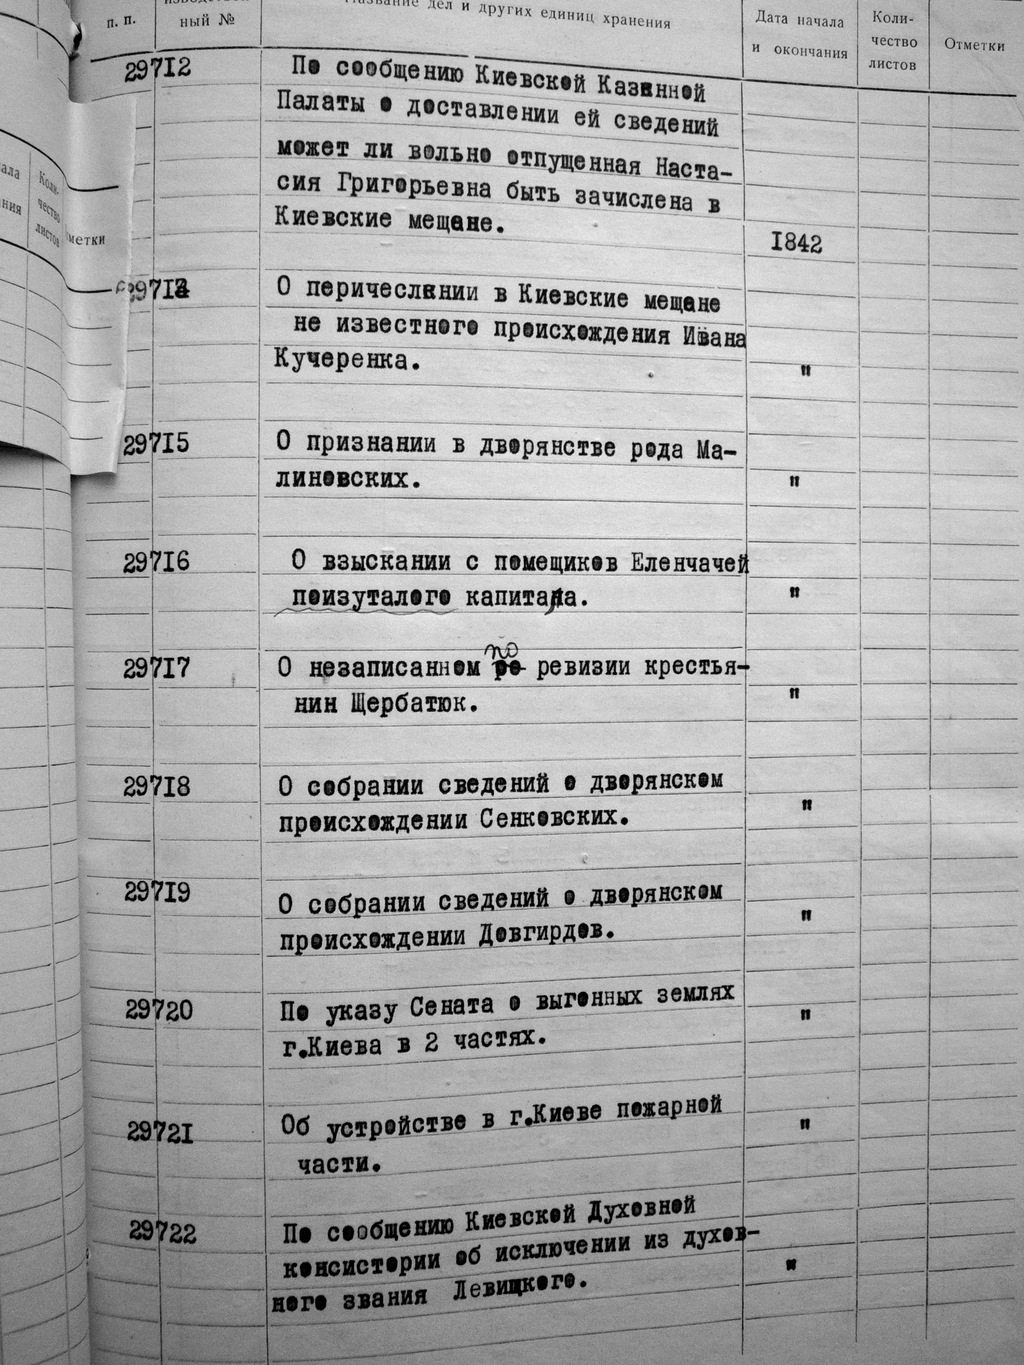 п. п.
ный №
Название дел и других единиц хранения
Дата начала
и окончания
Коли-
чество
листов
Отметки
29712
По сообщению Киевской Казенной
Палаты о доставлении ей сведений
может ли вольно отпущенная Наста-
сия Григорьевна быть зачислена в
Киевские мещане.
1842
О перичеслении в Киевские мещане
не известного происхождения Ивана
Кучеренка.
"
29715
О признании в дворянстве рода Ма-
линовских.
"
29716
О взыскании с помещиков Еленчачей
поизуталого капитала.
"
29717
О незаписанном по ревизии крестья-
нин Щербатюк.
"
29718
О собрании сведений о дворянском
происхождении Сенковских.
"
29719
О собрании сведений о дворянском
происхождении Довгирдов.
"
29720
По указу Сената о выгонных землях
г.Киева в 2 частях.
"
29721
Об устройстве в г.Киеве пожарной
части.
"
29722
По сообщению Киевской Духовной
консистории об исключении из духов-
ного звания Левицкого.
"
ала
ния
Коли-
чество
листов
метки